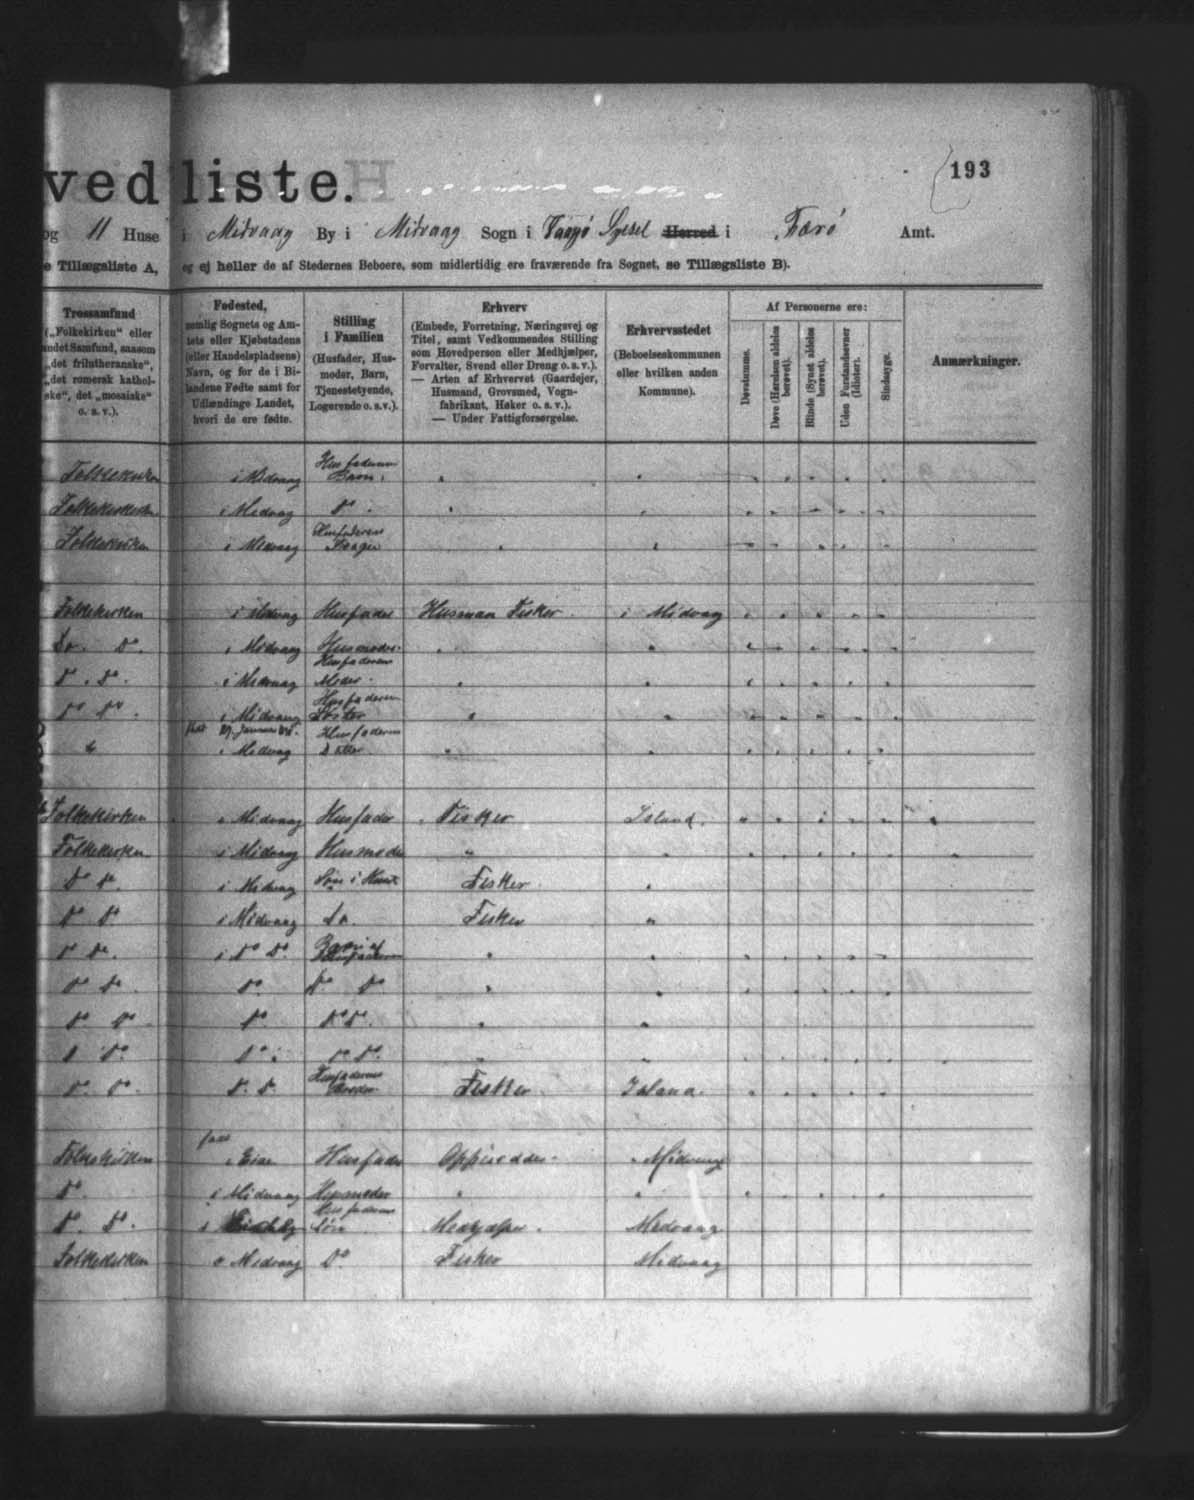 193
vedliste.
og 11 Huse i Midvaag By i Midvaag Sogn i Vaagø Sysel Herred i Færø Amt.
e Tillægsliste A, og ej heller de af Stedernes Beboere, som midlertidig ere fraværende fra Sognet, se Tillægsliste B).
Trossamfund
(„Folkekirken“ eller
andet Samfund, saasom
„det frilutheranske“,
„det romersk kathol-
ske“, det „mosaiske“
o. s. v.).
Fødested,
nemlig Sognets og Am-
tets eller Kjøbstadens
(eller Handelspladsens)
Navn, og for de i Bi-
landene Fødte samt for
Udlændinge Landet,
hvori de ere fødte.
Stilling
i Familien
(Husfader, Hus-
moder, Barn,
Tjenestetyende,
Logerende o. s. v.).
Erhverv
(Embede, Forretning, Næringsvej og
Titel, samt Vedkommendes Stilling
som Hovedperson eller Medhjælper,
Forvalter, Svend eller Dreng o. s. v.).
— Arten af Erhvervet (Gaardejer,
Husmand, Grovsmed, Vogn-
fabrikant, Høker o. s. v.).
— Under Fattigforsørgelse.
Erhvervsstedet
(Beboelseskommunen
eller hvilken anden
Kommune).
Af Personerne ere:
Døvstumme.
Døve (Hørelsen aldeles
berøvet).
Blinde (Synet aldeles
berøvet).
Uden Forstandsevner
(Idioter).
Sindssyge.
Anmærkninger.
Folkekirken i Midvaag Husfaderens Barn
Folkekirken i Midvaag Do
Folkekirken i Midvaag Husfaderens
Folkekirken i Midvaag Husfader Husman Fisker i Midvaag
Do. Do. i Midvaag Husmoder
Do. Do. i Midvaag Husfaderens Moder
Do Do i Midvaag Husfaderens Søster
i Midvaag Husfaderens
Folkekirken i Midvaag Husfader Fisker Island.
Folkekirken i Midvaag Husmoder "
Do Do i Midvaag Fisker
Do Do i Midvaag Do. Fisker "
Do Do. i Do Do. Barn af Husfaderen
Do Do. Do. Do Do
Do Do Do. Do Do.
Do Do Do Do.
Do. Do. Do. Do. Husfaderens Broder Fisker Island.
Folkekirken Husfader Midvaag
Do. i Midvaag Husmoder
Do. Do. i Husfaderens Søn Midvaag
Folkekirken Midvaag Do Fisker Midvaag